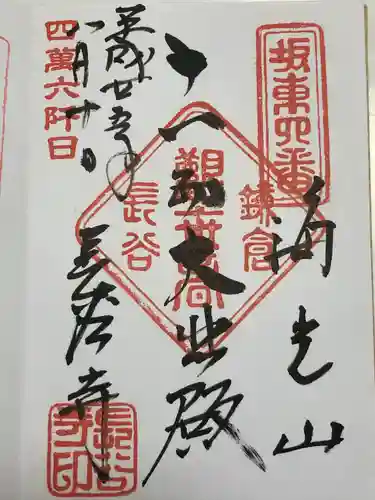 坂東四番
海光山
鎌倉
十一面大悲殿
観世音
長谷
平成廿五年
八月十日
四萬六阡日
長谷寺
長谷寺印